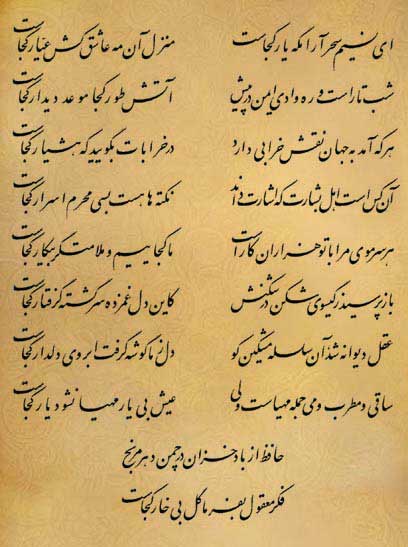 ای نسیم سحر آرامگه یار کجاست منزل آن مه عاشق کش عیار کجاست
شب تار است و ره وادی ایمن در پیش آتش طور کجا موعد دیدار کجاست
هر که آمد به جهان نقش خرابی دارد در خرابات بگویید که هشیار کجاست
آن کس است اهل بشارت که اشارت داند نکته ها هست بسی محرم اسرار کجاست
هر سر موی مرا با تو هزاران کار است ما کجاییم و ملامت گر بیکار کجاست
باز پرسید ز گیسوی شکن در شکنش کاین دل غمزده سرگشته گرفتار کجاست
عقل دیوانه شد آن سلسله مشکین کو دل ز ما گوشه گرفت ابروی دلدار کجاست
ساقی و مطرب و می جمله مهیاست ولی عیش بی یار مهیا نشود یار کجاست
حافظ از باد خزان در چمن دهر مرنج
فکر معقول بفرما گل بی خار کجاست